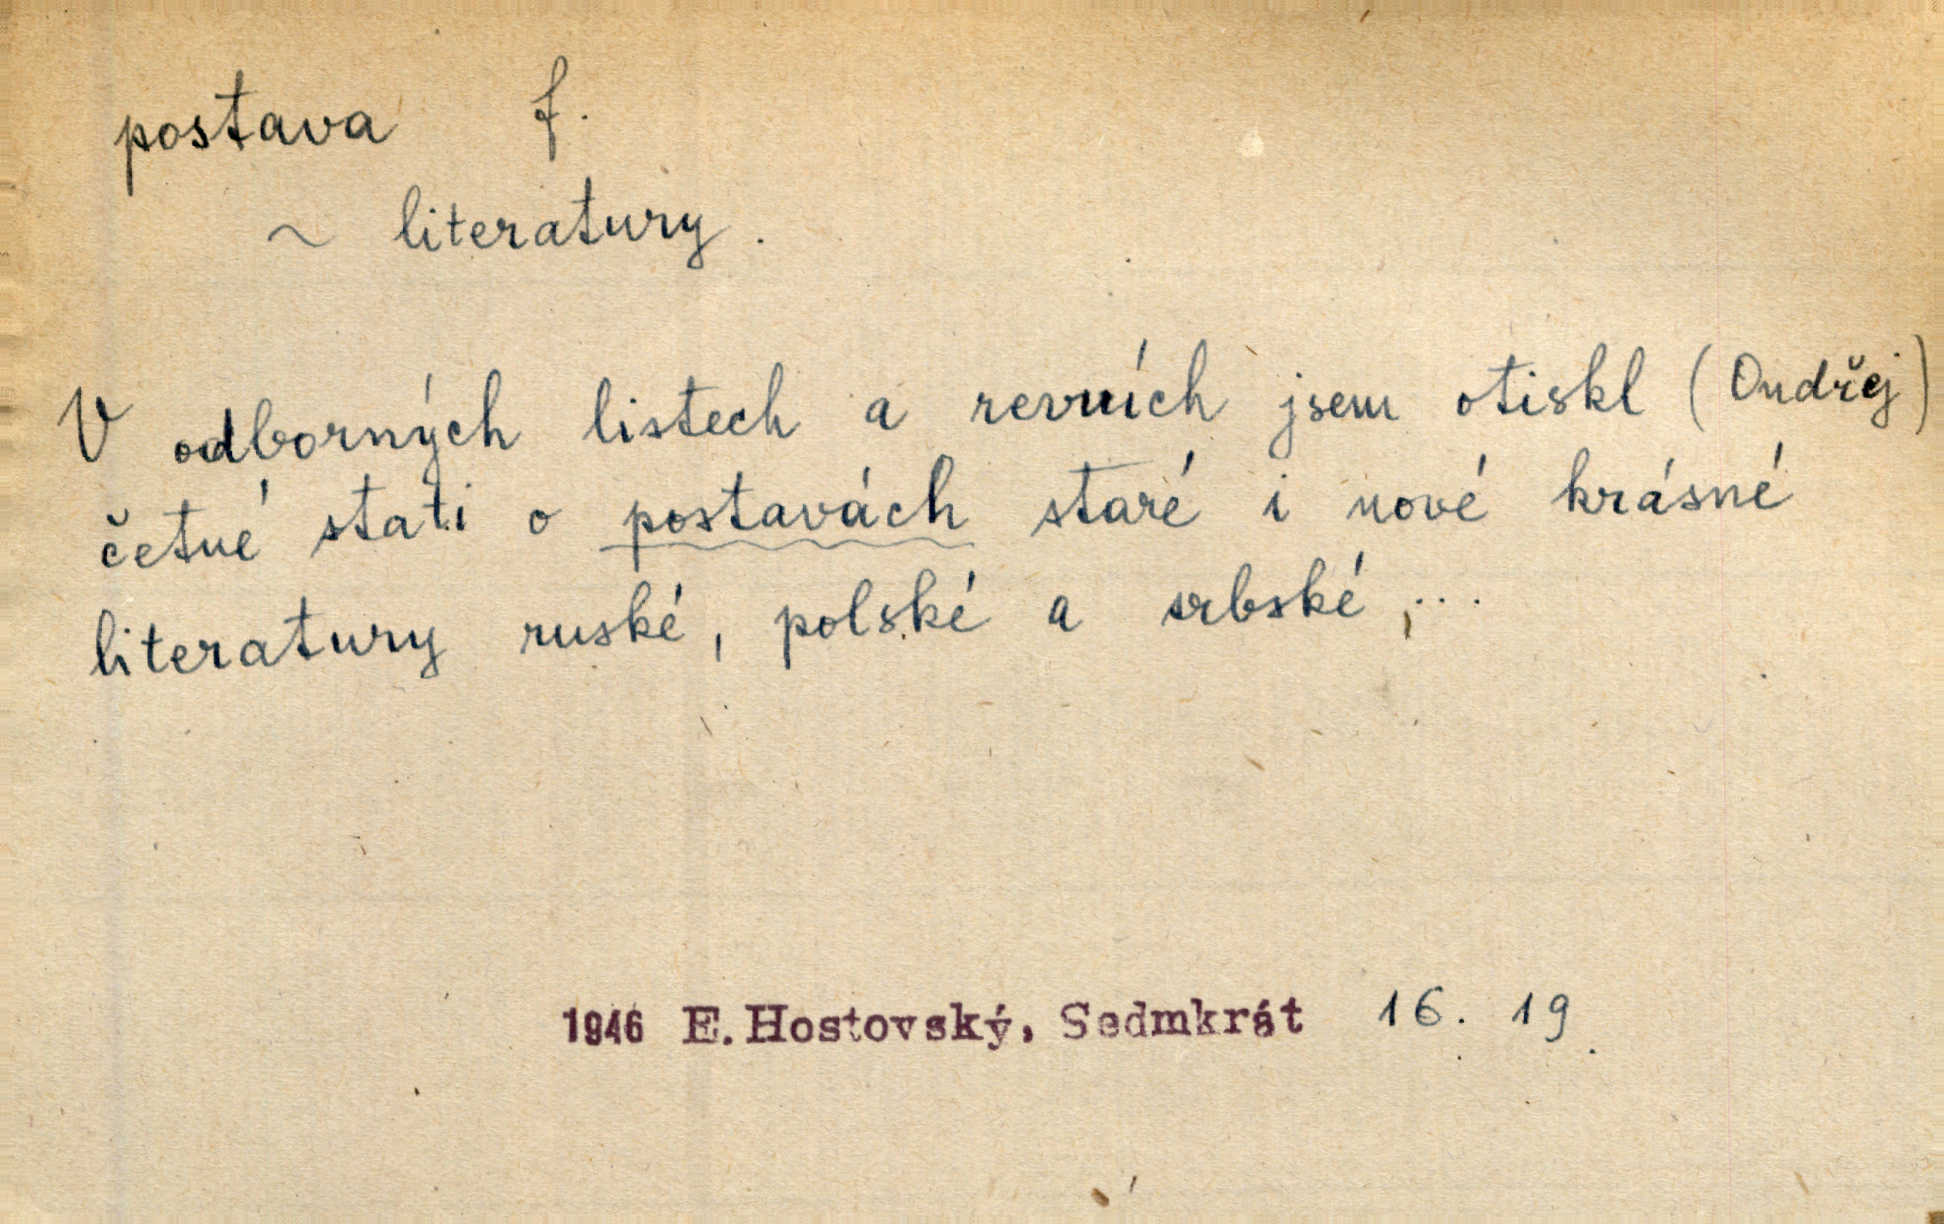 postava f.
~ literatury.
V odborných listech a revuích jsem otiskl (Ondřej)
četné stati o postavách staré i nové krásné
literatury ruské, polské a srbské,...
1946 E. Hostovský, Sedmkrát 16. 19